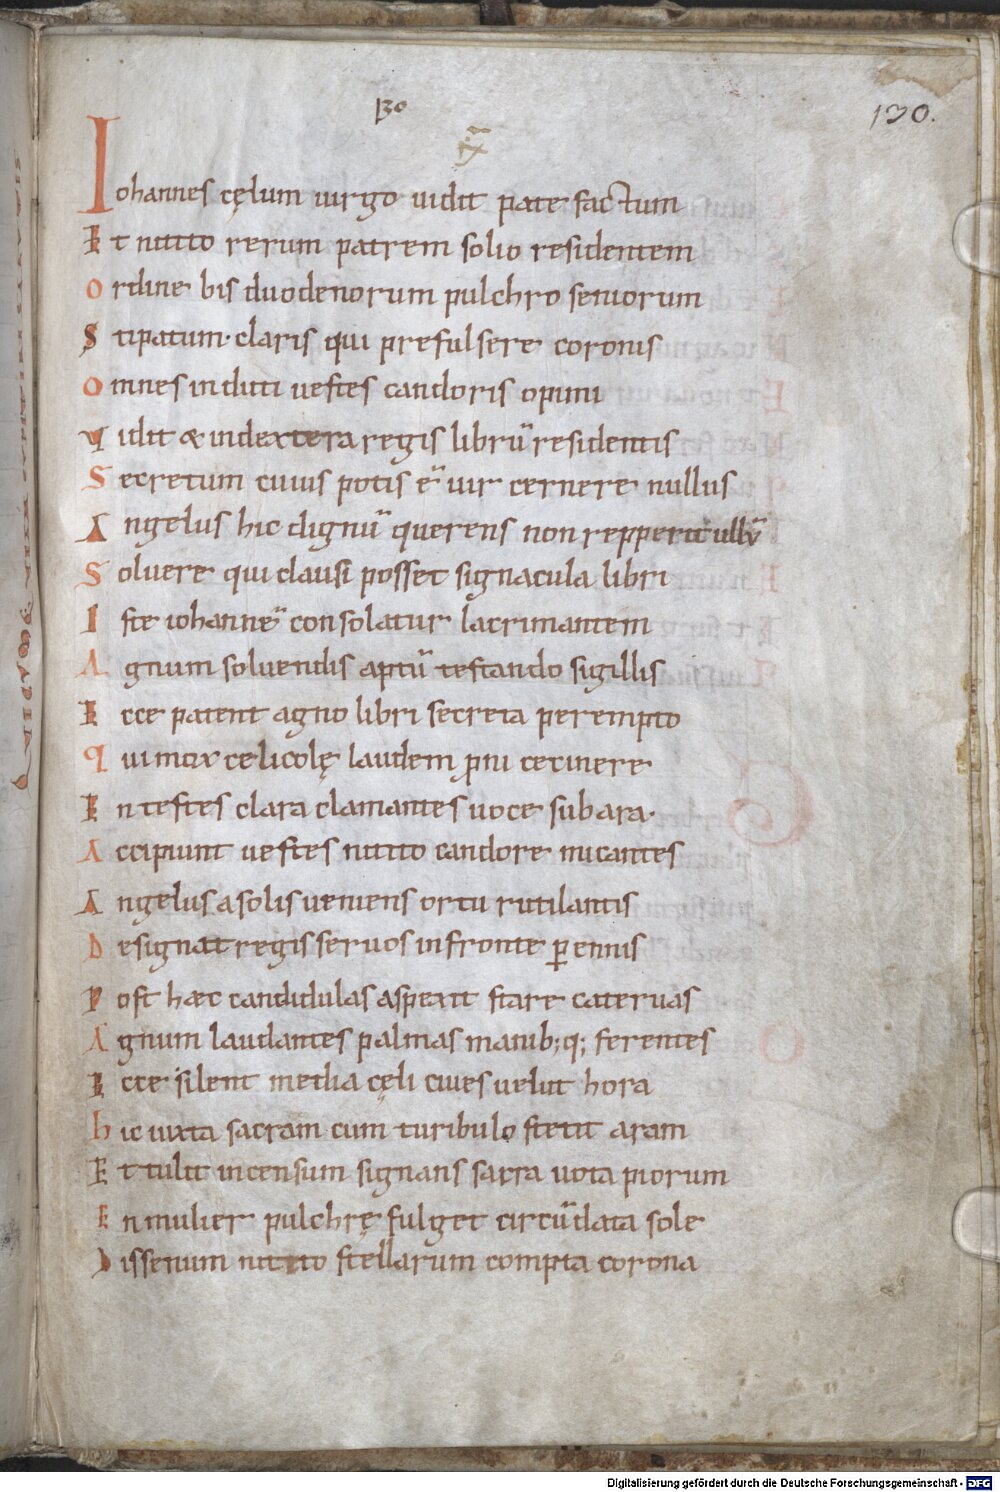 130
130.
Iohannes cęlum uirgo uidit patefactum
Et nitito rerum patrem solio residentem
Ordine bis duodenorum pulchro seniorum
Stipatum· claris qui prefulsere coronis
Omnes induti uestes candoris opimi
Vidit & in dextera regis librū residentis
Secretum cuius potis ē uir cernere nullus
Angelus hic dignū querens non repperit ullū
Soluere qui clausi posset signacula libri
Iste iohannē consolatur lacrimantem
Agnum soluendis aptū testando sigillis
Ecce patent agno libri secreta perempto
qui mox celicolę laudem pni cecinere
En testes clara clamantes uoce sub ara·
Accipiunt uestes nitito candore micantes
Angelus a solis ueniens ortu rutilantis
Designat regis seruos in fronte pennis
Post hæc candidulas aspexit stare cateruas
Agnum laudantes palmas manib;q; ferentes
Ecce silent media cęli ciues uelut hora
hic iuxta sacram cum turibulo stetit aram
Et tulit incensum signans sacra uota piorum
En mulier pulchrę fulget circūdata sole
Bissenum niteto stellarum compta corona
Digitalisierung gefördert durch die Deutsche Forschungsgemeinschaft - DFG